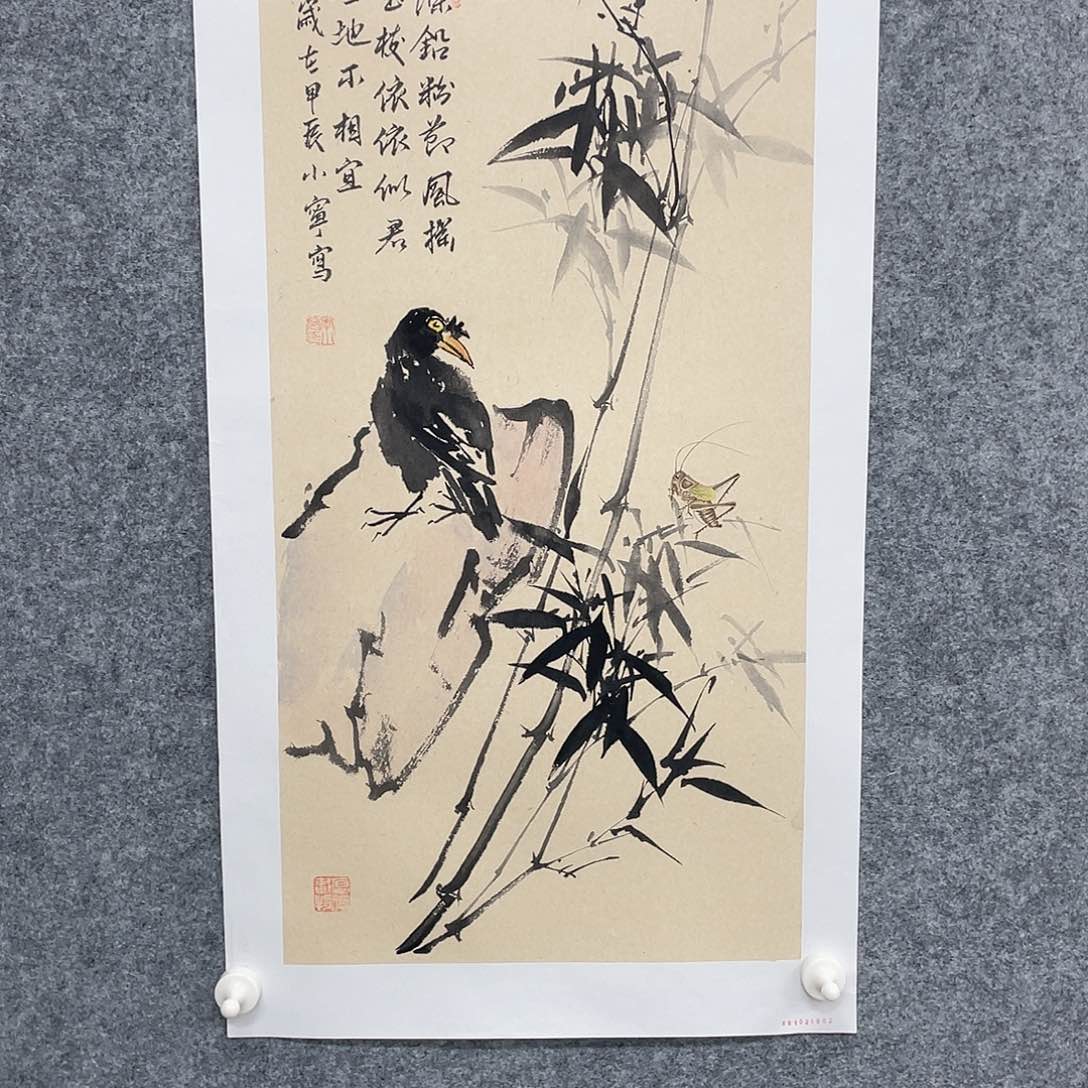 鉛粉節風搖
玉枝依依似君
地不相宜
歲在甲辰小寧寫